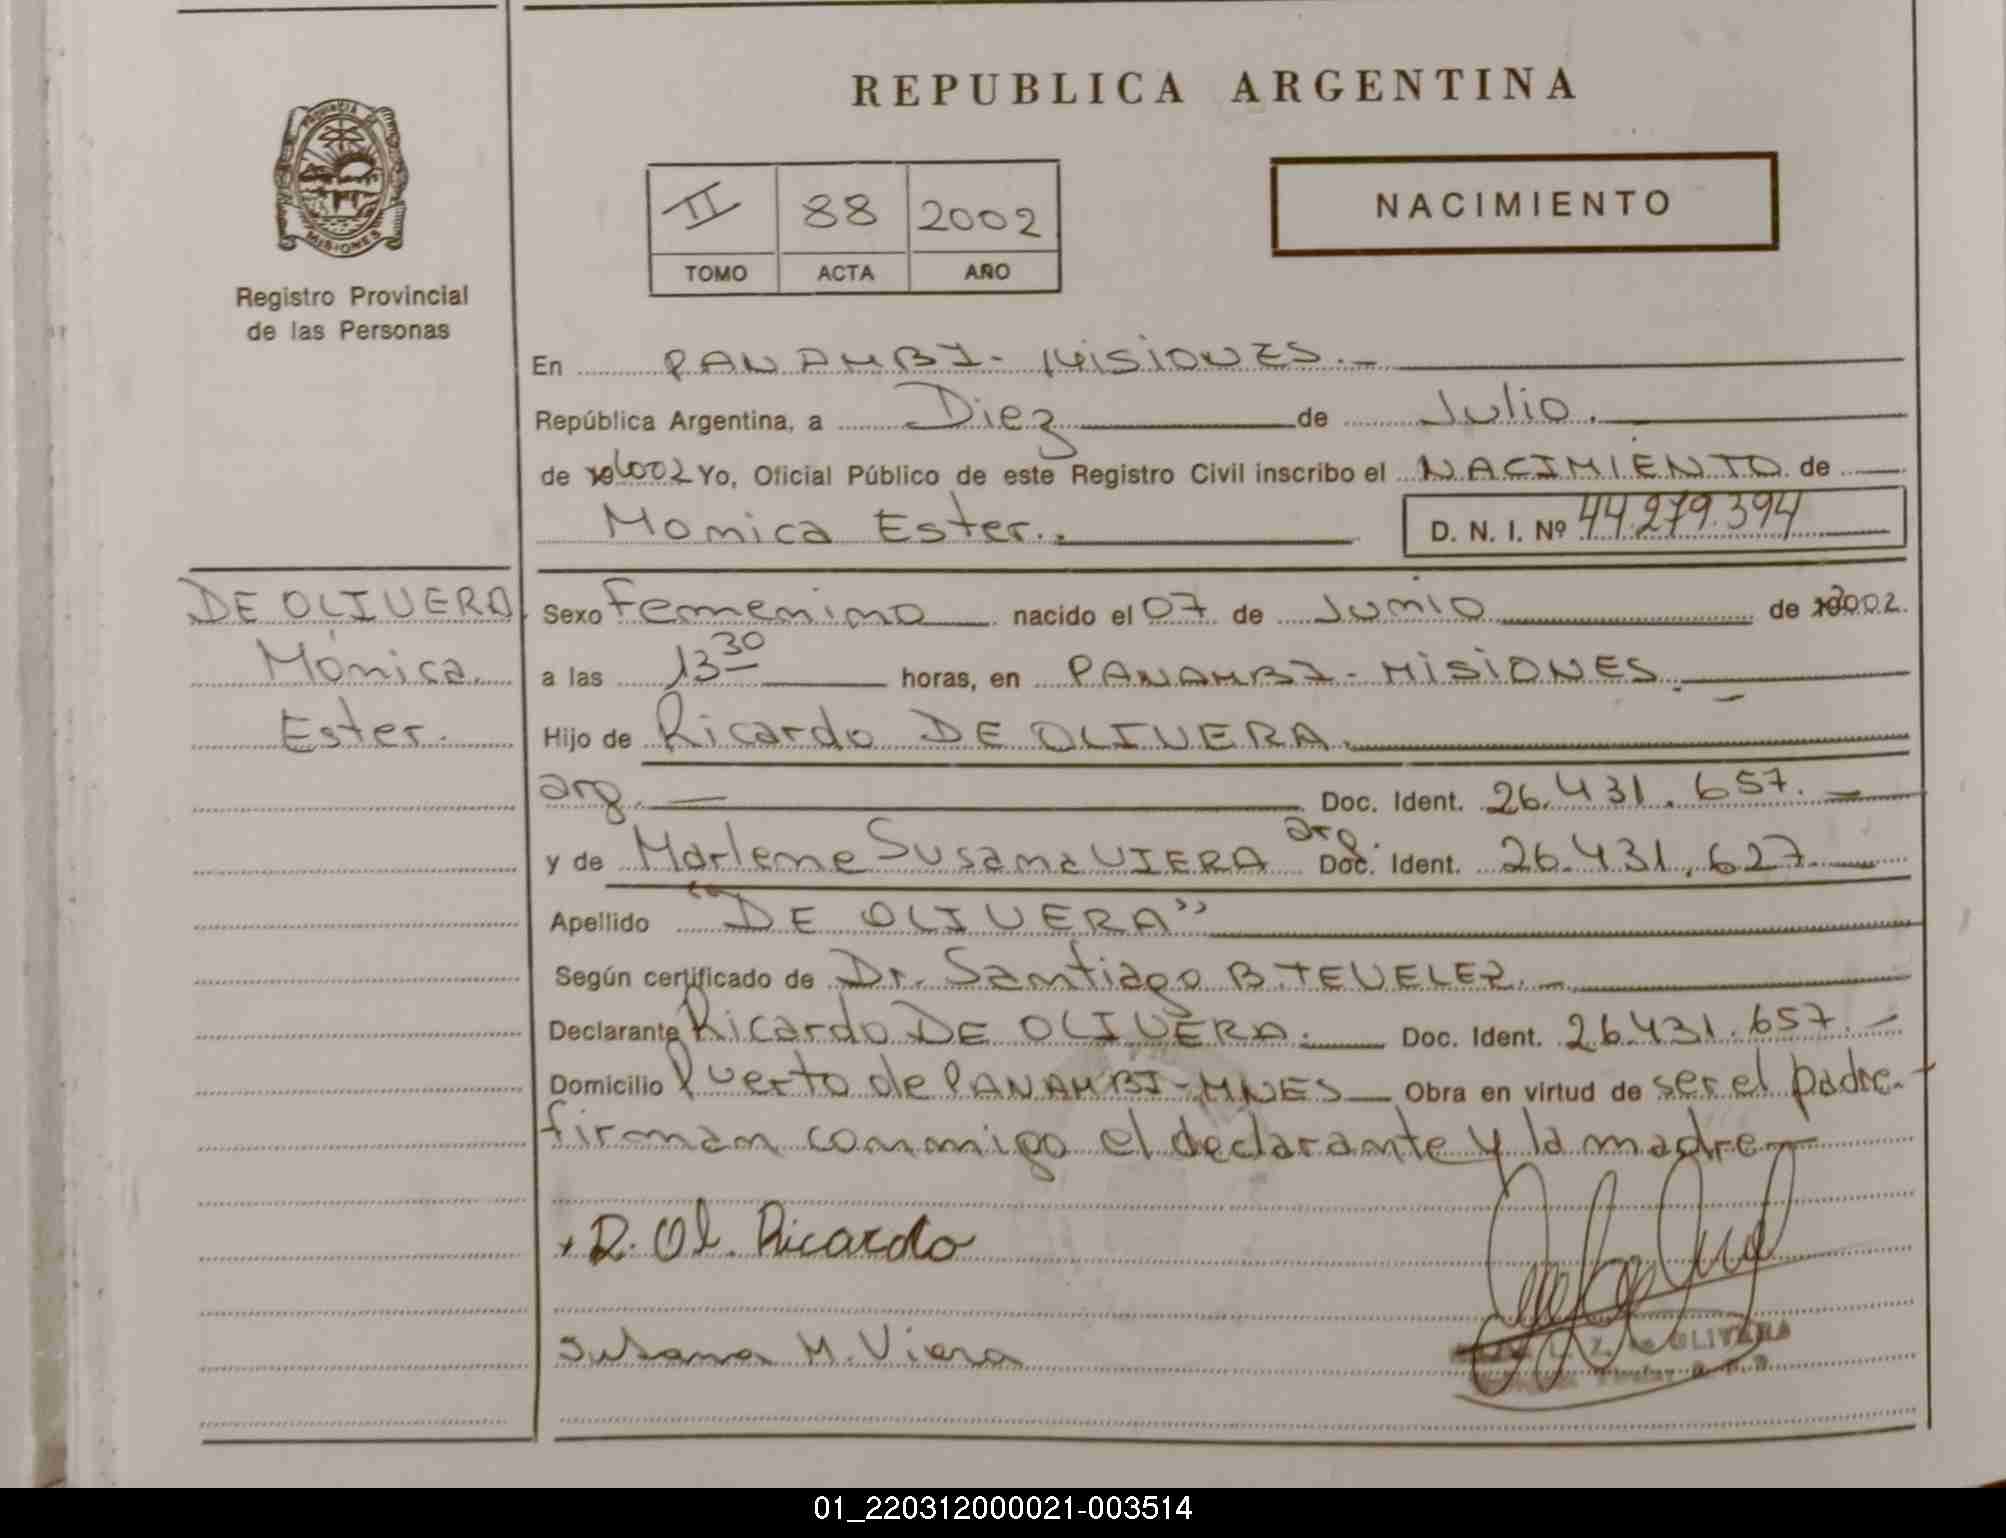 REPUBLICA ARGENTINA
PROVINCIA DE
MISIONES
Registro Provincial
de las Personas
II 88 2002
TOMO ACTA AÑO
NACIMIENTO
En PANAMBI - MISIONES.-
República Argentina, a Diez de Julio.
de 2002 Yo, Oficial Público de este Registro Civil inscribo el NACIMIENTO de
Monica Ester.. D. N. I. Nº 44.279.394
DE OLIVERA
Mónica
Ester.
Sexo Femenino nacido el 07 de Junio de 2002.
a las 13 30 horas, en PANAMBI - MISIONES.-
Hijo de Ricardo DE OLIVERA.
arg. — Doc. Ident. 26.431.657.-
y de Marlene Susana VIERA arg. Doc. Ident. 26.431.627.
Apellido "DE OLIVERA"
Según certificado de Dr. Santiago B. TEVELEZ.-
Declarante Ricardo DE OLIVERA. Doc. Ident. 26.431.657.-
Domicilio Puerto de PANAMBI - MNES Obra en virtud de ser el padre.-
firman conmigo el declarante y la madre
D. Ol. Ricardo
Susana M. Viera
L. Z. de OLIVERA
01_220312000021-003514